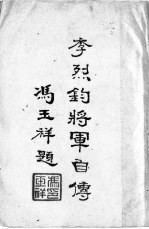 李烈鈞將軍自傳
馮玉祥題
馮玉祥